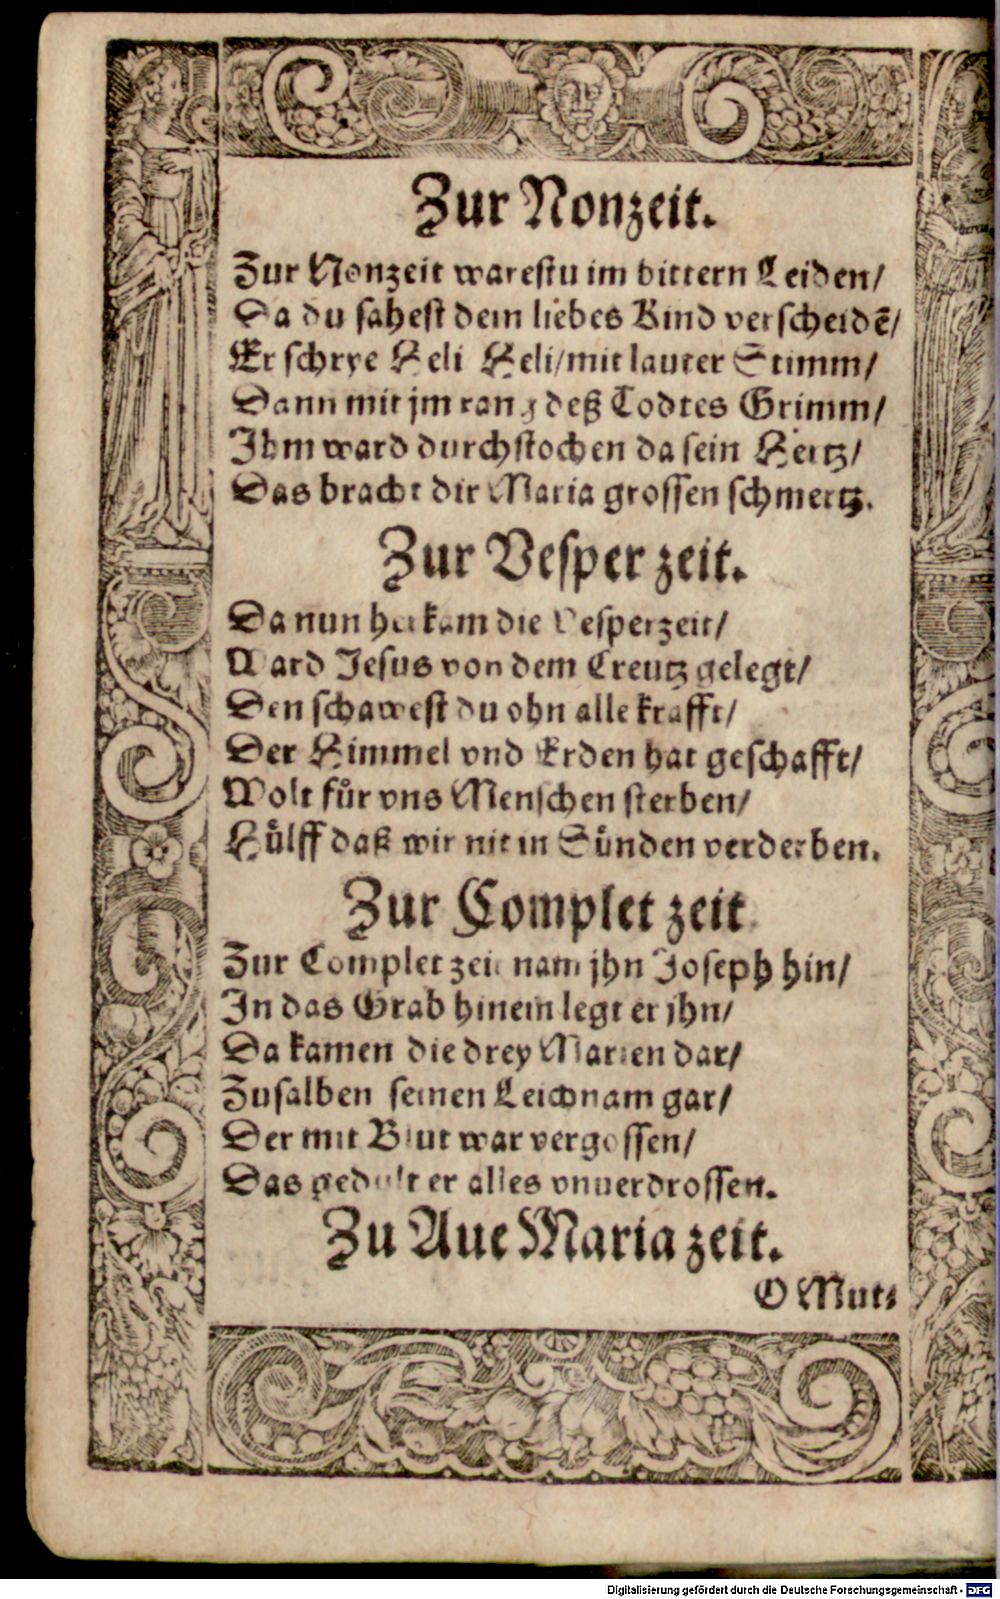 Zur Nonzeit.
Zur Nonzeit warestu im bittern Leiden/
Da du sahest dein liebes Kind verscheidẽ/
Er schrye Heli Heli/mit lauter Stimm/
Dann mit jm rang deß Todtes Grimm/
Ihm ward durchstochen da sein Hertz/
Das bracht dir Maria grossen schmertz.
Zur Vesper zeit.
Da nun herkam die Vesperzeit/
Ward Jesus von dem Creutz gelegt/
Den schawest du ohn alle krafft/
Der Himmel vnd Erden hat geschafft/
Wolt fuͤr vns Menschen sterben/
Huͤlff daß wir nit in Suͤnden verderben.
Zur Complet zeit
Zur Complet zeit nam jhn Joseph hin/
In das Grab hinein legt er jhn/
Da kamen die drey Marien dar/
Zusalben seinen Leichnam gar/
Der mit Blut war vergossen/
Das gedult er alles vnuerdrossen.
Zu Aue Maria zeit.
O Mut⸗
Digitalisierung gefördert durch die Deutsche Forschungsgemeinschaft - DFG